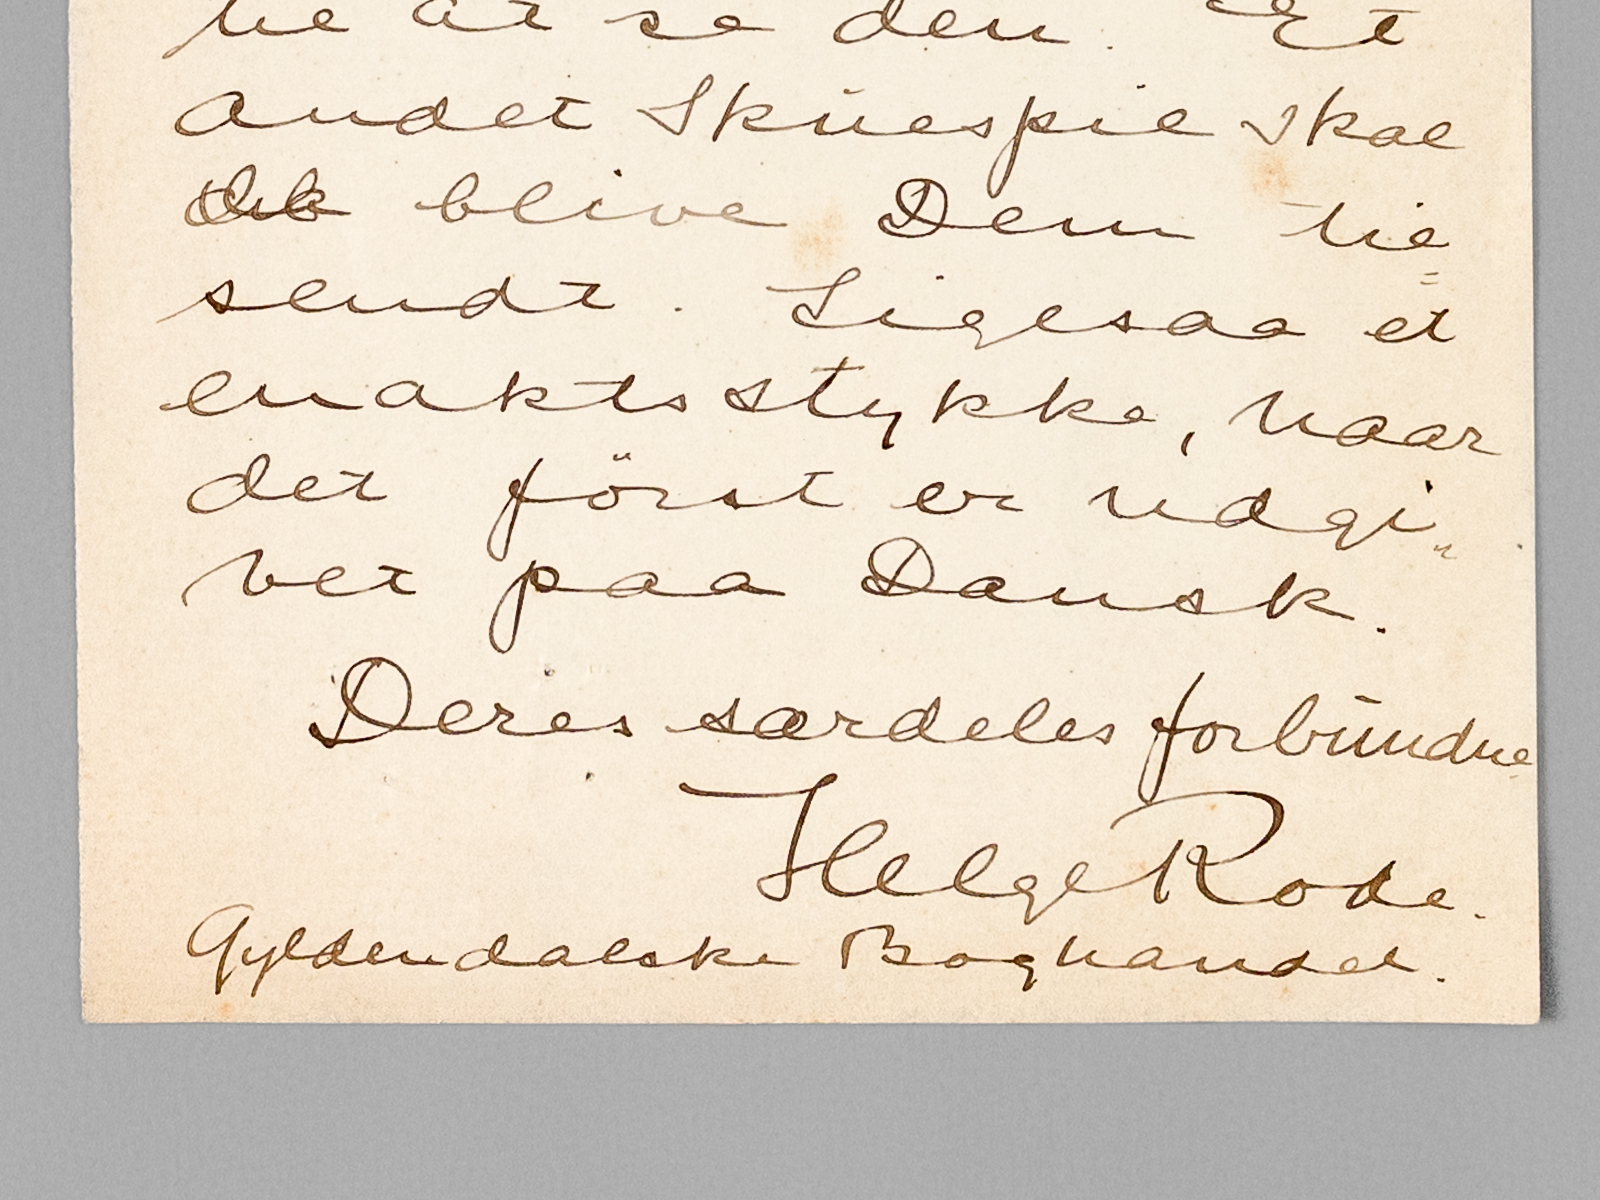 at se den. Et
andet Skuespil skal
blive Dem til=
sendt. Ligesaa et
enaktsstykke, naar
det först er udgi„
vet paa Dansk.
Deres særdeles forbundne
Helge Rode.
Gyldendalske Boghandel.